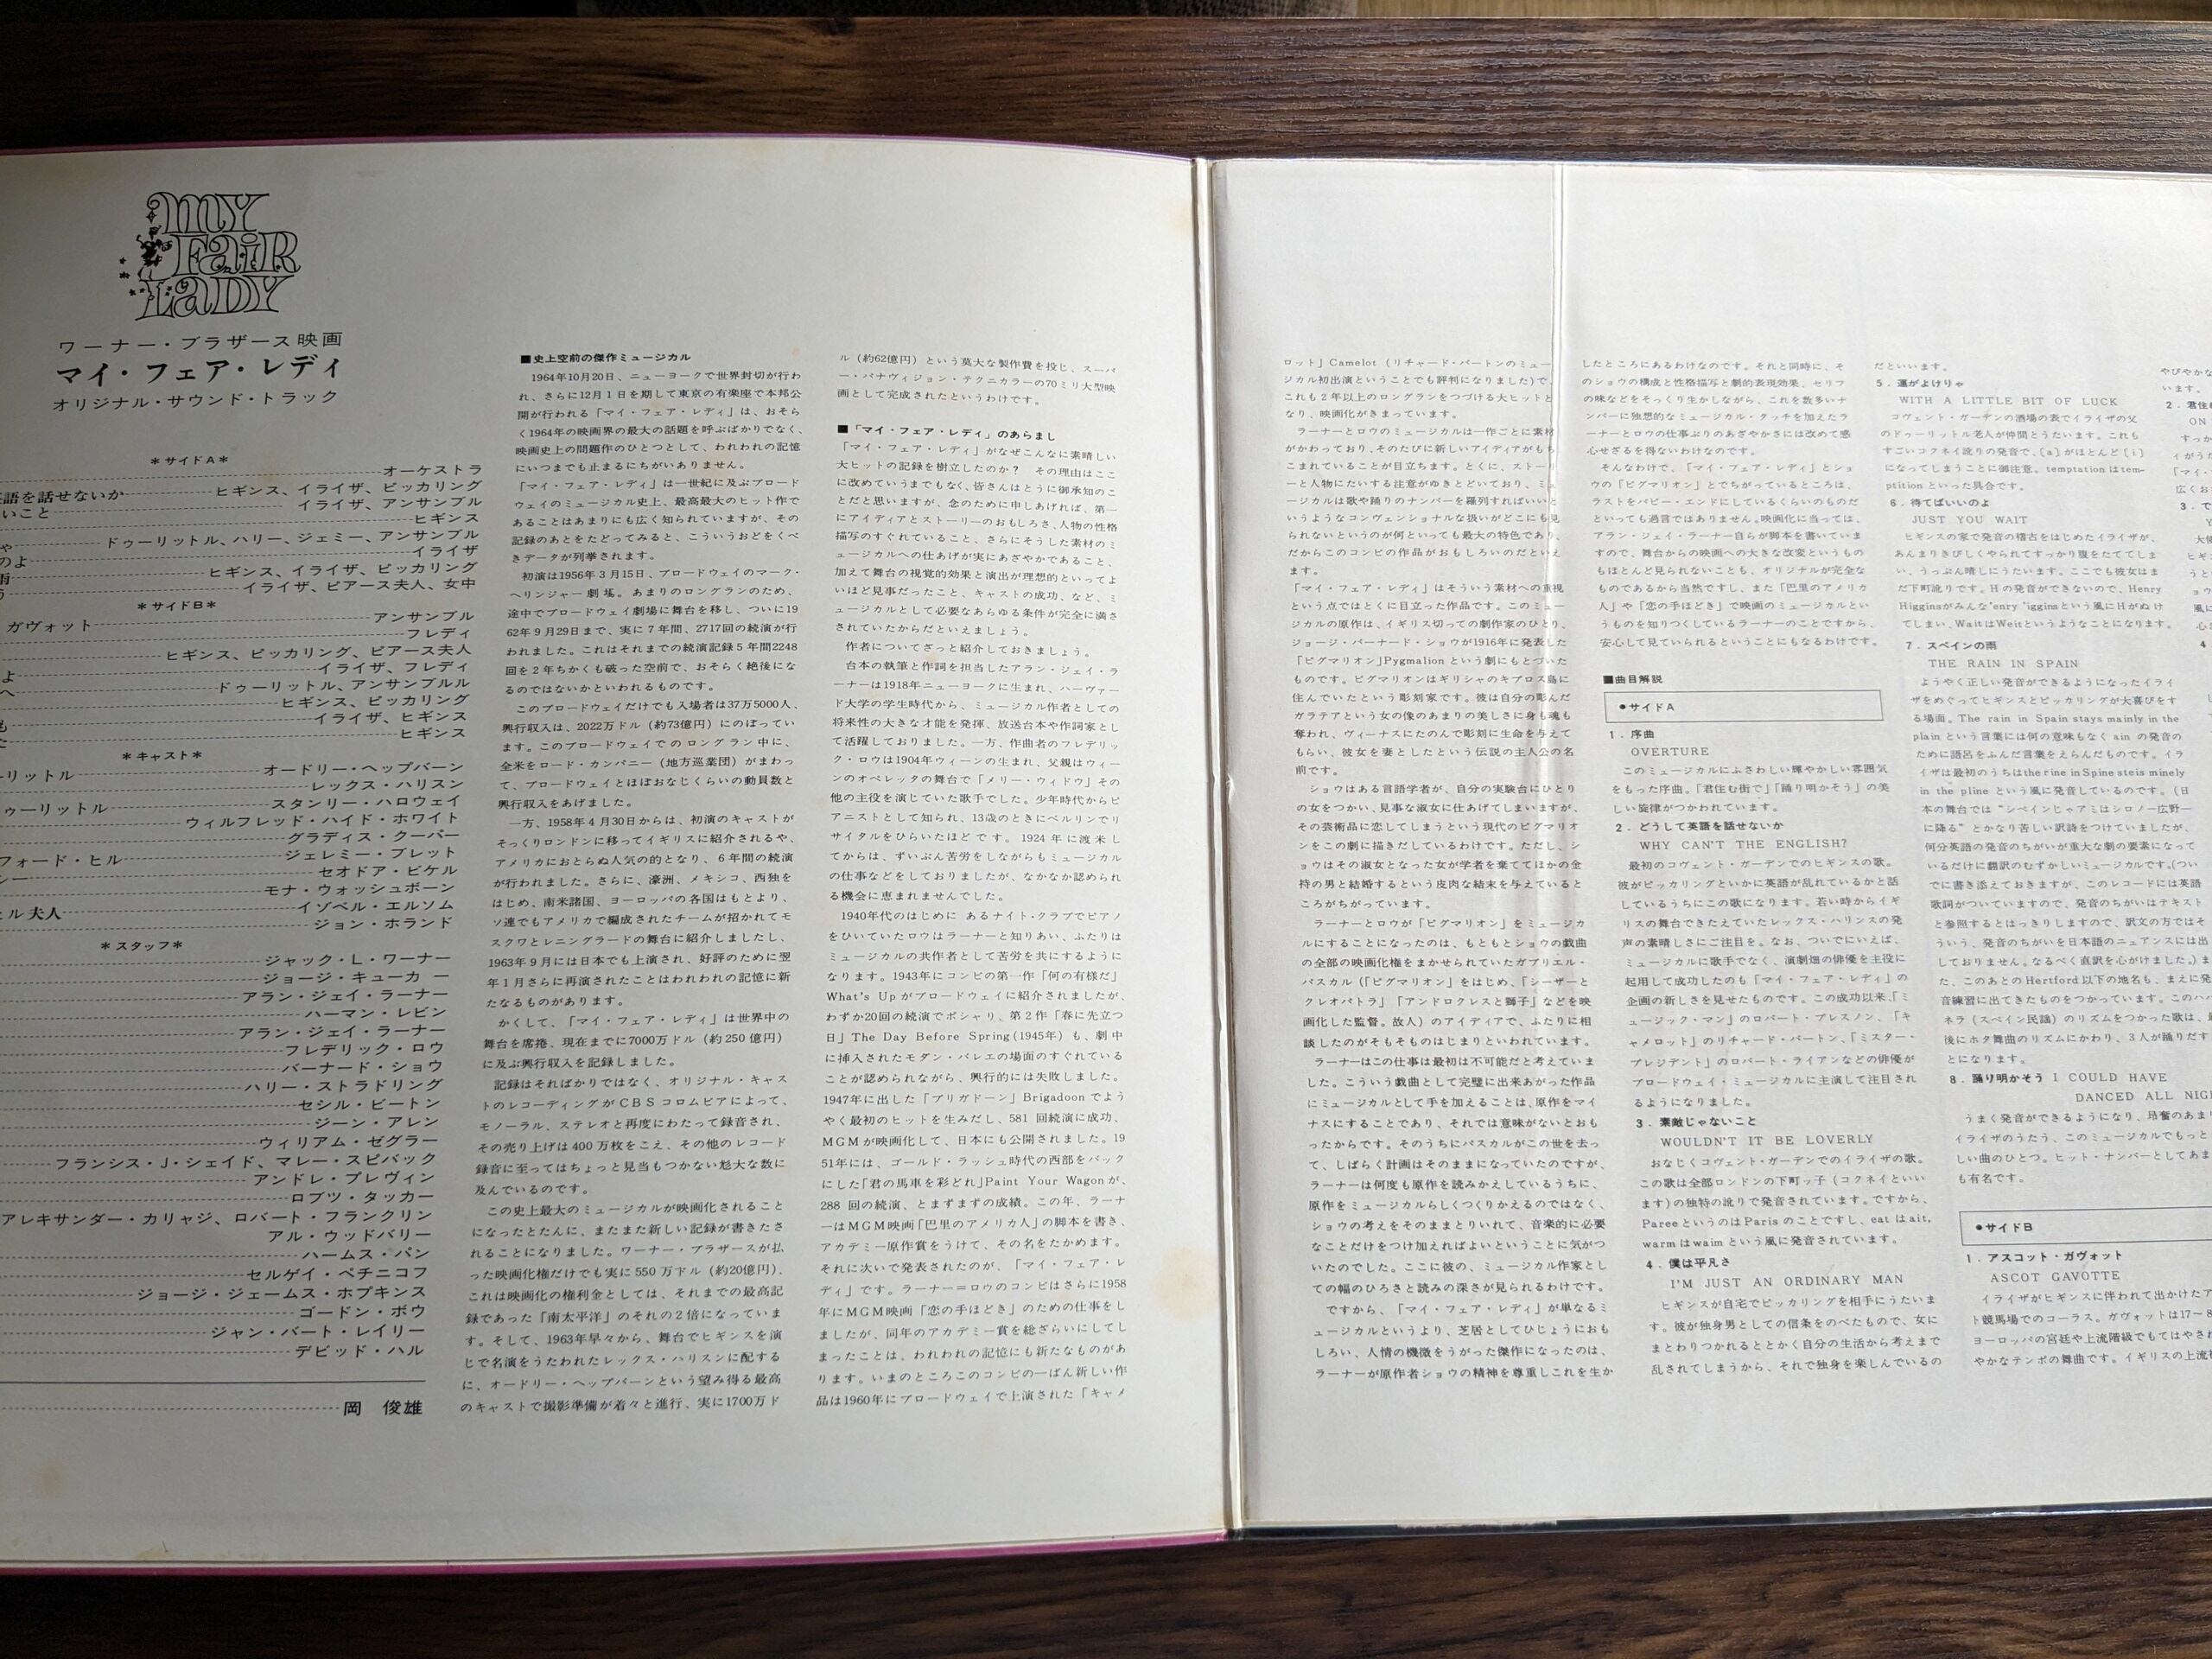 MY
FaiR
LaDY
ワーナー・ブラザース映画
マイ・フェア・レディ
オリジナル・サウンド・トラック
*サイドA*
オーケストラ
英語を話せないか ヒギンス、イライザ、ピッカリング
いこと イライザ、アンサンブル
ヒギンス
ゃ ドゥーリットル、ハリー、ジェミー、アンサンブル
のよ イライザ
雨 ヒギンス、イライザ、ピッカリング
う イライザ、ピアース夫人、女中
*サイドB*
アンサンブル
ガヴォット フレディ
ヒギンス、ピッカリング、ピアース夫人
イライザ、フレディ
よ ドゥーリットル、アンサンブルル
へ ヒギンス、ピッカリング
も イライザ、ヒギンス
た ヒギンス
*キャスト*
ーリットル オードリー・ヘップバーン
レックス・ハリスン
ゥーリットル スタンリー・ハロウェイ
ウィルフレッド・ハイド・ホワイト
グラディス・クーパー
フォード・ヒル ジェレミー・ブレット
シー セオドア・ビケル
モナ・ウォッシュボーン
ヒル夫人 イゾベル・エルソム
ジョン・ホランド
*スタッフ*
ジャック・L・ワーナー
ジョージ・キューカー
アラン・ジェイ・ラーナー
ハーマン・レビン
アラン・ジェイ・ラーナー
フレデリック・ロウ
バーナード・ショウ
ハリー・ストラドリング
セシル・ビートン
ジーン・アレン
ウィリアム・ゼグラー
フランシス・J・シェイド、マレー・スピバック
アンドレ・プレヴィン
ロブツ・タッカー
アレキサンダー・カリャジ、ロバート・フランクリン
アル・ウッドバリー
ハームス・パン
セルゲイ・ペチニコフ
ジョージ・ジェームス・ホプキンス
ゴードン・ボウ
ジャン・バート・レイリー
デビッド・ハル
岡 俊雄
■史上空前の傑作ミュージカル
1964年10月20日、ニューヨークで世界封切が行わ
れ、さらに12月1日を期して東京の有楽座で本邦公
開が行われる「マイ・フェア・レディ」は、おそら
く1964年の映画界の最大の話題を呼ぶばかりでなく、
映画史上の問題作のひとつとして、われわれの記憶
にいつまでも止まるにちがいありません。
「マイ・フェア・レディ」は一世紀に及ぶブロード
ウェイのミュージカル史上、最高最大のヒット作で
あることはあまりにも広く知られていますが、その
記録のあとをたどってみると、こういうおどをくべ
きデータが列挙されます。
初演は1956年3月15日、ブロードウェイのマーク・
ヘリンジャー劇場。あまりのロングランのため、
途中でブロードウェイ劇場に舞台を移し、ついに19
62年9月29日まで、実に7年間、2717回の続演が行
われました。これはそれまでの続演記録5年間2248
回を2年ちかくも破った空前で、おそらく絶後にな
るのではないかといわれるものです。
このブロードウェイだけでも入場者は37万5000人、
興行収入は、2022万ドル(約73億円)にのぼってい
ます。このブロードウェイでのロングラン中に、
全米をロード・カンパニー(地方巡業団)がまわっ
て、ブロードウェイとほぼおなじくらいの動員数と
興行収入をあげました。
一方、1958年4月30日からは、初演のキャストが
そっくりロンドンに移ってイギリスに紹介されるや、
アメリカにおとらぬ人気の的となり、6年間の続演
が行われました。さらに、濠洲、メキシコ、西独を
はじめ、南米諸国、ヨーロッパの各国はもとより、
ソ連でもアメリカで編成されたチームが招かれてモ
スクワとレニングラードの舞台に紹介しましたし、
1963年9月には日本でも上演され、好評のために翌
年1月さらに再演されたことはわれわれの記憶に新
たなるものがあります。
かくして、「マイ・フェア・レディ」は世界中の
舞台を席捲、現在までに7000万ドル(約250億円)
に及ぶ興行収入を記録しました。
記録はそればかりではなく、オリジナル・キャス
トのレコーディングがCBSコロムビアによって、
モノーラル、ステレオと再度にわたって録音され、
その売り上げは400万枚をこえ、その他のレコード
録音に至ってはちょっと見当もつかない尨大な数に
及んでいるのです。
この史上最大のミュージカルが映画化されること
になったとたんに、またまた新しい記録が書きたさ
れることになりました。ワーナー・ブラザースが払
った映画化権だけでも実に550万ドル(約20億円)、
これは映画化の権利金としては、それまでの最高記
録であった「南太平洋」のそれの2倍になっていま
す。そして、1963年早々から、舞台でヒギンスを演
じて名演をうたわれたレックス・ハリスンに配する
に、オードリー・ヘップバーンという望み得る最高
のキャストで撮影準備が着々と進行、実に1700万ド
ル(約62億円)という莫大な製作費を投じ、スーパ
ー・パナヴィジョン・テクニカラーの70ミリ大型映
画として完成されたというわけです。
■「マイ・フェア・レディ」のあらまし
「マイ・フェア・レディ」がなぜこんなに素晴しい
大ヒットの記録を樹立したのか? その理由はここ
に改めていうまでもなく、皆さんはとうに御承知のこ
とだと思いますが、念のために申しあげれば、第一
にアイディアとストーリーのおもしろさ、人物の性格
描写のすぐれていること、さらにそうした素材のミ
ュージカルへの仕あげが実にあざやかであること、
加えて舞台の視覚的効果と演出が理想的といってよ
いほど見事だったこと、キャストの成功、など、ミ
ュージカルとして必要なあらゆる条件が完全に満さ
されていたからだといえましょう。
作者についてざっと紹介しておきましょう。
台本の執筆と作詞を担当したアラン・ジェイ・ラ
ーナーは1918年ニューヨークに生まれ、ハーヴァー
ド大学の学生時代から、ミュージカル作者としての
将来性の大きな才能を発揮、放送台本や作詞家とし
て活躍しておりました。一方、作曲者のフレデリッ
ク・ロウは1904年ウィーンの生まれ、父親はウィー
ンのオペレッタの舞台で「メリー・ウィドウ」その
他の主役を演じていた歌手でした。少年時代からピ
アニストとして知られ、13歳のときにベルリンでリ
サイタルをひらいたほどです。1924年に渡米し
てからは、ずいぶん苦労をしながらもミュージカル
の仕事などをしておりましたが、なかなか認められ
る機会に恵まれませんでした。
1940年代のはじめに あるナイト・クラブでピアノ
をひいていたロウはラーナーと知りあい、ふたりは
ミュージカルの共作者として苦労を共にするように
なります。1943年にコンビの第一作「何の有様だ」
What's Upがブロードウェイに紹介されましたが、
わずか20回の続演でポシャり、第2作「春に先立つ
日」The Day Before Spring(1945年)も、劇中
に挿入されたモダン・バレエの場面のすぐれている
ことが認められながら、興行的には失敗しました。
1947年に出した「ブリガドーン」Brigadoonでよう
やく最初のヒットを生みだし、581回続演に成功、
MGMが映画化して、日本にも公開されました。19
51年には、ゴールド・ラッシュ時代の西部をバック
にした「君の馬車を彩どれ」Paint Your Wagonが、
288回の続演、とまずまずの成績。この年、ラーナ
ーはMGM映画「巴里のアメリカ人」の脚本を書き、
アカデミー原作賞をうけて、その名をたかめます。
それに次いで発表されたのが、「マイ・フェア・レ
ディ」です。ラーナー=ロウのコンビはさらに1958
年にMGM映画「恋の手ほどき」のための仕事をし
ましたが、同年のアカデミー賞を総ざらいにしてし
まったことは、われわれの記憶にも新たなものがあ
ります。いまのところこのコンビの一ばん新しい作
品は1960年にブロードウェイで上演された「キャメ
ロット」Camelot(リチャード・バートンのミュー
ジカル初出演ということでも評判になりました)で、
これも2年以上のロングランをつづける大ヒットと
なり、映画化がきまっています。
ラーナーとロウのミュージカルは一作ごとに素材
がかわっており、そのたびに新しいアイディアがもち
こまれていることが目立ちます。とくに、ストーリ
ーと人物にたいする注意がゆきとどいており、ミュ
ージカルは歌や踊りのナンバーを羅列すればいいと
いうようなコンヴェンショナルな扱いがどこにも見
られないというのが何といっても最大の特色であり、
だからこのコンビの作品がおもしろいのだといえ
ます。
「マイ・フェア・レディ」はそういう素材への重視
という点ではとくに目立った作品です。このミュー
ジカルの原作は、イギリス切っての劇作家のひとり、
ジョージ・バーナード・ショウが1916年に発表した
「ピグマリオン」Pygmalionという劇にもとづいた
ものです。ピグマリオンはギリシャのキプロス島に
住んでいたという彫刻家です。彼は自分の彫んだ
ガラテアという女の像のあまりの美しさに身も魂も
奪われ、ヴィーナスにたのんで彫刻に生命を与えて
もらい、彼女を妻としたという伝説の主人公の名
前です。
ショウはある言語学者が、自分の実験台にひとり
の女をつかい、見事な淑女に仕あげてしまいますが、
その芸術品に恋してしまうという現代のピグマリオ
ンをこの劇に描きだしているわけです。ただし、シ
ョウはその淑女となった女が学者を棄ててほかの金
持の男と結婚するという皮肉な結末を与えていると
ころがちがっています。
ラーナーとロウが「ピグマリオン」をミュージカ
ルにすることになったのは、もともとショウの戯曲
の全部の映画化権をまかせられていたガブリエル・
パスカル(「ピグマリオン」をはじめ、「シーザーと
クレオパトラ」「アンドロクレスと獅子」などを映
画化した監督。故人)のアイディアで、ふたりに相
談したのがそもそものはじまりといわれています。
ラーナーはこの仕事は最初は不可能だと考えていま
した。こういう戯曲として完璧に出来あがった作品
にミュージカルとして手を加えることは、原作をマイ
ナスにすることであり、それでは意味がないとおも
ったからです。そのうちにパスカルがこの世を去っ
て、しばらく計画はそのままになっていたのですが、
ラーナーは何度も原作を読みかえしているうちに、
原作をミュージカルらしくつくりかえるのではなく、
ショウの考えをそのままとりいれて、音楽的に必要
なことだけをつけ加えればよいということに気がつ
いたのでした。ここに彼の、ミュージカル作家とし
ての幅のひろさと読みの深さが見られるわけです。
ですから、「マイ・フェア・レディ」が単なるミ
ュージカルというより、芝居としてひじょうにおも
しろい、人情の機微をうがった傑作になったのは、
ラーナーが原作者ショウの精神を尊重しこれを生か
したところにあるわけなのです。それと同時に、そ
のショウの構成と性格描写と劇的表現効果、セリフ
の味などをそっくり生かしながら、これを数多いナ
ンバーに独想的なミュージカル・タッチを加えたラ
ーナーとロウの仕事ぶりのあざやかさには改めて感
心せざるを得ないわけなのです。
そんなわけで、「マイ・フェア・レディ」とショ
ウの「ピグマリオン」とでちがっているところは、
ラストをハピー・エンドにしているくらいのものだ
といっても過言ではありません。映画化に当っては、
アラン・ジェイ・ラーナー自らが脚本を書いていま
すので、舞台からの映画への大きな改変というもの
もほとんど見られないことも、オリジナルが完全な
ものであるから当然ですし、また「巴里のアメリカ
人」や「恋の手ほどき」で映画のミュージカルとい
うものを知りつくしているラーナーのことですから、
安心して見ていられるということにもなるわけです。
■曲目解説
●サイドA
1. 序曲
OVERTURE
このミュージカルにふさわしい輝やかしい雰囲気
をもった序曲。「君住む街で」「踊り明かそう」の美
しい旋律がつかわれています。
2. どうして英語を話せないか
WHY CAN'T THE ENGLISH?
最初のコヴェント・ガーデンでのヒギンスの歌。
彼がピッカリングといかに英語が乱れているかと話
しているうちにこの歌になります。若い時からイギ
リスの舞台できたえていたレックス・ハリンスの発
声の素晴しさにご注目を。なお、ついでにいえば、
ミュージカルに歌手でなく、演劇畑の俳優を主役に
起用して成功したのも「マイ・フェア・レディ」の
企画の新しさを見せたものです。この成功以来、「ミ
ュージック・マン」のロバート・プレスノン、「キ
ャメロット」のリチャード・バートン、「ミスター・
プレジデント」のロバート・ライアンなどの俳優が
ブロードウェイ・ミュージカルに主演して注目され
るようになりました。
3. 素敵じゃないこと
WOULDN'T IT BE LOVERLY
おなじくコヴェント・ガーデンでのイライザの歌。
この歌は全部ロンドンの下町ッ子(コクネイといい
ます)の独特の訛りで発音されています。ですから、
PareeというのはParisのことですし、eatはait,
warmはwaimという風に発音されています。
4. 僕は平凡さ
I'M JUST AN ORDINARY MAN
ヒギンスが自宅でピッカリングを相手にうたいま
す。彼が独身男としての信条をのべたもので、女に
まとわりつかれるととかく自分の生活から考えまで
乱されてしまうから、それで独身を楽しんでいるの
だといいます。
5. 運がよけりゃ
WITH A LITTLE BIT OF LUCK
コヴェント・ガーデンの酒場の表でイライザの父
のドゥーリットル老人が仲間とうたいます。これも
すごいコクネイ流りの発音で、[a]がほとんど[i]
になってしまうことに御注意。temptationはtem-
ptitionといった具合です。
6. 待てばいいのよ
JUST YOU WAIT
ヒギンスの家で発音の稽古をはじめたイライザが、
あんまりきびしくやられてすっかり腹をたててしま
い、うっぷん晴しにうたいます。ここでも彼女はま
だ下町訛りです。Hの発音ができないので、Henry
Higginsがみんな'enry 'igginsという風にHがぬけ
てしまい、WaitはWeitというようなことになります。
7. スペインの雨
THE RAIN IN SPAIN
ようやく正しい発音ができるようになったイライ
ザをめぐってヒギンスとピッカリングが大喜びをす
る場面。The rain in Spain stays mainly in the
plainという言葉には何の意味もなくainの発音の
ために語呂をふんだ言葉をえらんだものです。イラ
イザは最初のうちはthe rine in Spine steis minely
in the plineという風に発音しているのです。(日
本の舞台では"シペインじゃアミはシロノー広野一
に降る"とかなり苦しい訳詩をつけていましたが、
何分英語の発音のちがいが重大な劇の要素になって
いるだけに翻訳のむずかしいミュージカルです。(つい
でに書き添えておきますが、このレコードには英語
歌詞がついていますので、発音のちがいはテキスト
と参照するとはっきりしますので、訳文の方ではそ
ういう、発音のちがいを日本語のニュアンスには出
しておりません。なるべく直訳を心がけました。)ま
た、このあとのHertford以下の地名も、まえに発
音練習に出てきたものをつかっています。このハバ
ネラ(スペイン民謡)のリズムをつかった歌は、最
後にホタ舞曲のリズムにかわり、3人が踊りだすこ
とになります。
8. 踊り明かそう I COULD HAVE
DANCED ALL NIG
うまく発音ができるようになり、昂奮のあまり
イライザのうたう、このミュージカルでもっと
しい曲のひとつ。ヒット・ナンバーとしてあま
も有名です。
●サイドB
1. アスコット・ガヴォット
ASCOT GAVOTTE
イライザがヒギンスに伴われて出かけたア
ト競馬場でのコーラス。ガヴォットは17〜8
ヨーロッパの宮廷や上流階級でもてはやされ
やかなテンポの舞曲です。イギリスの上流
やびやかな
います。
2. 君住
ON
すっか
ィがうた
「マイ・
広くお
3. で
大
ヒギ
ョウ
風に
心
4.